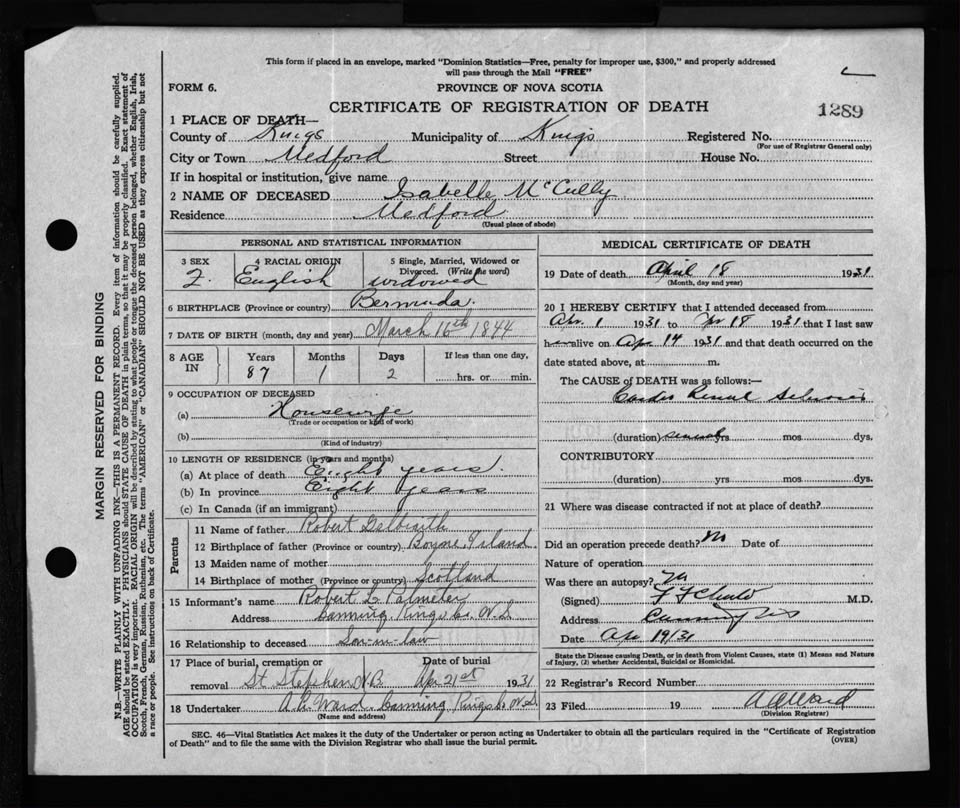 This form if placed in an envelope, marked "Dominion Statistics—Free, penalty for improper use, $300," and properly addressed
will pass through the Mail "FREE"
FORM 6.
PROVINCE OF NOVA SCOTIA
CERTIFICATE OF REGISTRATION OF DEATH
1289
1 PLACE OF DEATH—
County of Kings Municipality of Kings Registered No.
(For use of Registrar General only)
City or Town Medford Street House No.
If in hospital or institution, give name
2 NAME OF DECEASED Isabelle McCully
Residence Medford
(Usual place of abode)
PERSONAL AND STATISTICAL INFORMATION
3 SEX 4 RACIAL ORIGIN 5 Single, Married, Widowed or
Divorced. (Write the word)
F. English widowed
6 BIRTHPLACE (Province or country) Bermuda.
7 DATE OF BIRTH (month, day and year) March 16th 1844
8 AGE IN Years Months Days If less than one day,
87 1 2 hrs. or min.
9 OCCUPATION OF DECEASED
(a) Housewife
(Trade or occupation or kind of work)
(b)
(Kind of industry)
10 LENGTH OF RESIDENCE (in years and months)
(a) At place of death Eight years.
(b) In province Eight years
(c) In Canada (if an immigrant)
Parents
11 Name of father Robert Galbraith
12 Birthplace of father (Province or country) Boyne, Island.
13 Maiden name of mother
14 Birthplace of mother (Province or country) Scotland
15 Informant's name Robert L Palmeter
Address Canning Kings Co. N.S
16 Relationship to deceased Son-in-law
17 Place of burial, cremation or Date of burial
removal St Stephen N.B. Apr 21st 1931
18 Undertaker A. A. Ward. Canning Kings Co N.S.
(Name and address)
MEDICAL CERTIFICATE OF DEATH
19 Date of death April 18 1931
(Month, day and year)
20 I HEREBY CERTIFY that I attended deceased from
Apr. 1 1931 to Apr 18 1931 that I last saw
her alive on Apr 14 1931 and that death occurred on the
date stated above, at m.
The CAUSE OF DEATH was as follows:—
Cardio Renal Sclerosis
(duration) several yrs mos dys.
CONTRIBUTORY
(duration) yrs mos dys.
21 Where was disease contracted if not at place of death?
Did an operation precede death? No Date of
Nature of operation
Was there an autopsy? No
(Signed) M.D.
Address Canning NS
Date Apr 19/31
State the Disease causing Death, or in death from Violent Causes, state (1) Means and Nature
of Injury, (2) whether Accidental, Suicidal or Homicidal.
22 Registrar's Record Number
23 Filed 19 A A Ward
(Division Registrar)
SEC. 46—Vital Statistics Act makes it the duty of the Undertaker or person acting as Undertaker to obtain all the particulars required in the "Certificate of Registration
of Death" and to file the same with the Division Registrar who shall issue the burial permit. (OVER)
MARGIN RESERVED FOR BINDING
N.B.—WRITE PLAINLY WITH UNFADING INK—THIS IS A PERMANENT RECORD. Every item of information should be carefully supplied.
AGE should be stated EXACTLY. PHYSICIANS should STATE CAUSE OF DEATH in plain terms, so that it may be properly classified. Exact statement of
OCCUPATION is very important. RACIAL ORIGIN will be described by stating to what people or tongue the deceased person belonged, whether English, Irish,
Scotch, French, German, Russian, Ruthenian, etc. The terms "AMERICAN" or "CANADIAN" SHOULD NOT BE USED as they express citizenship but not
a race or people. See instructions on back of Certificate.